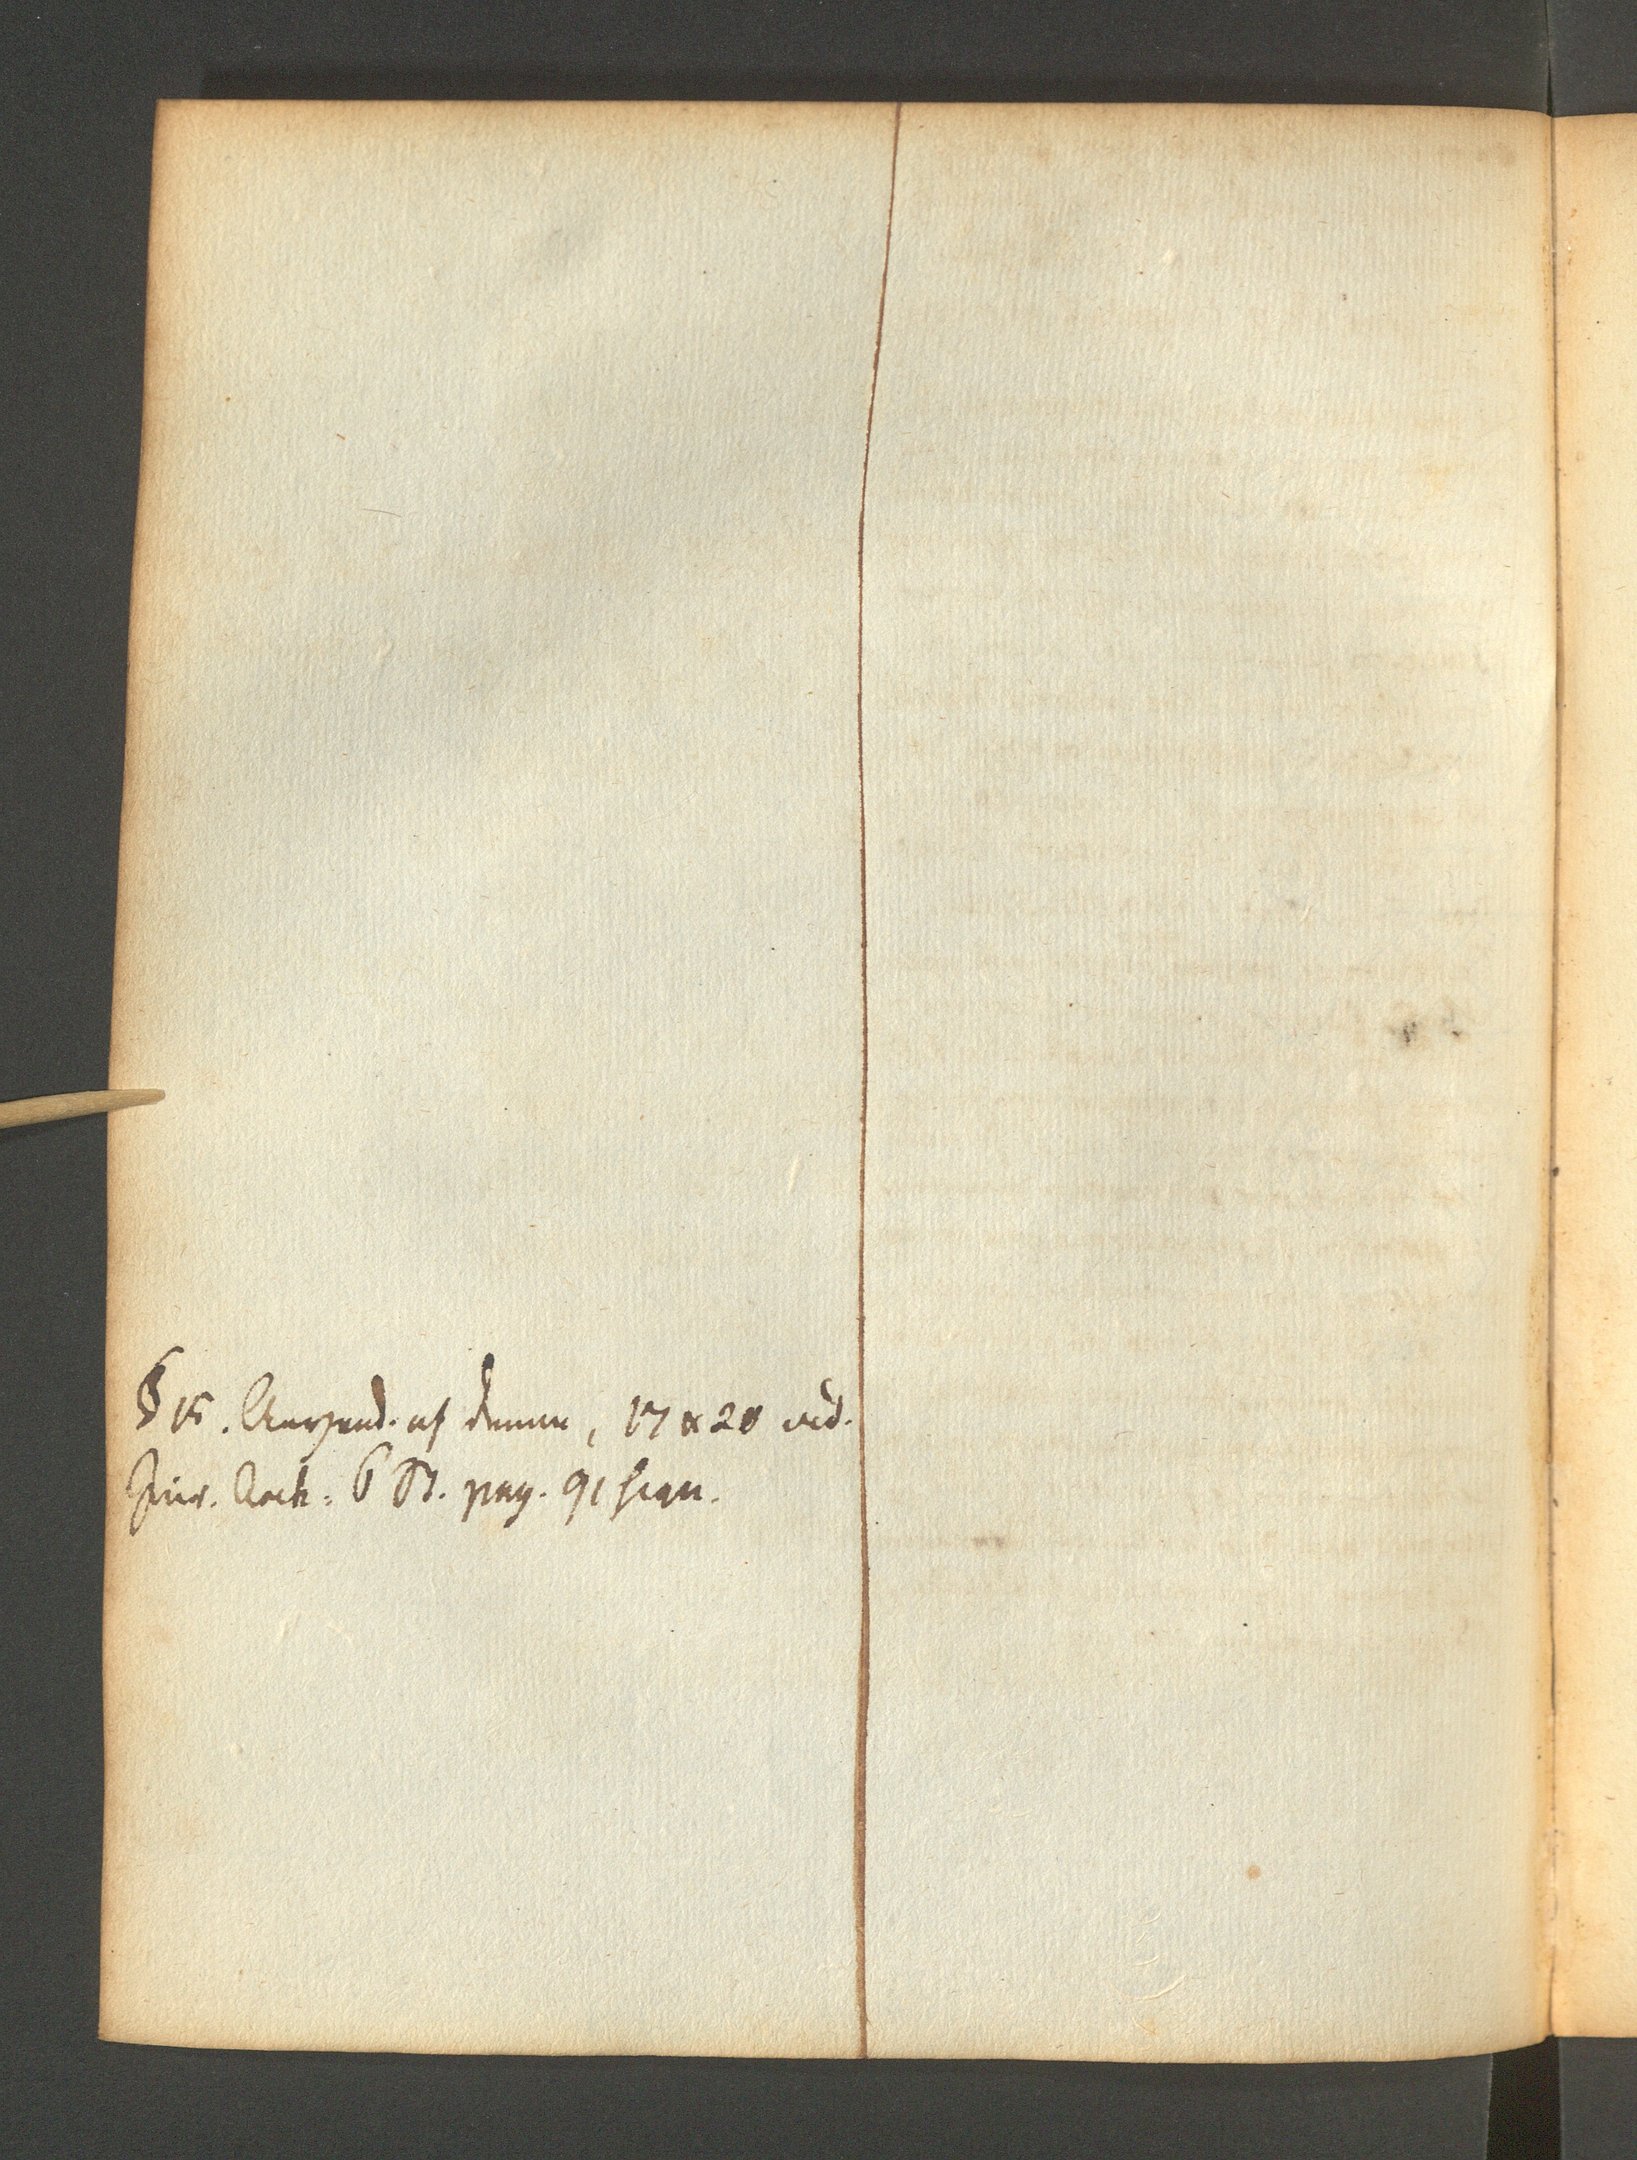 § 15. Anvend. af denne, 17 & 20 vid.
Jur. Arch. 6 B. pag. 91 seqv.